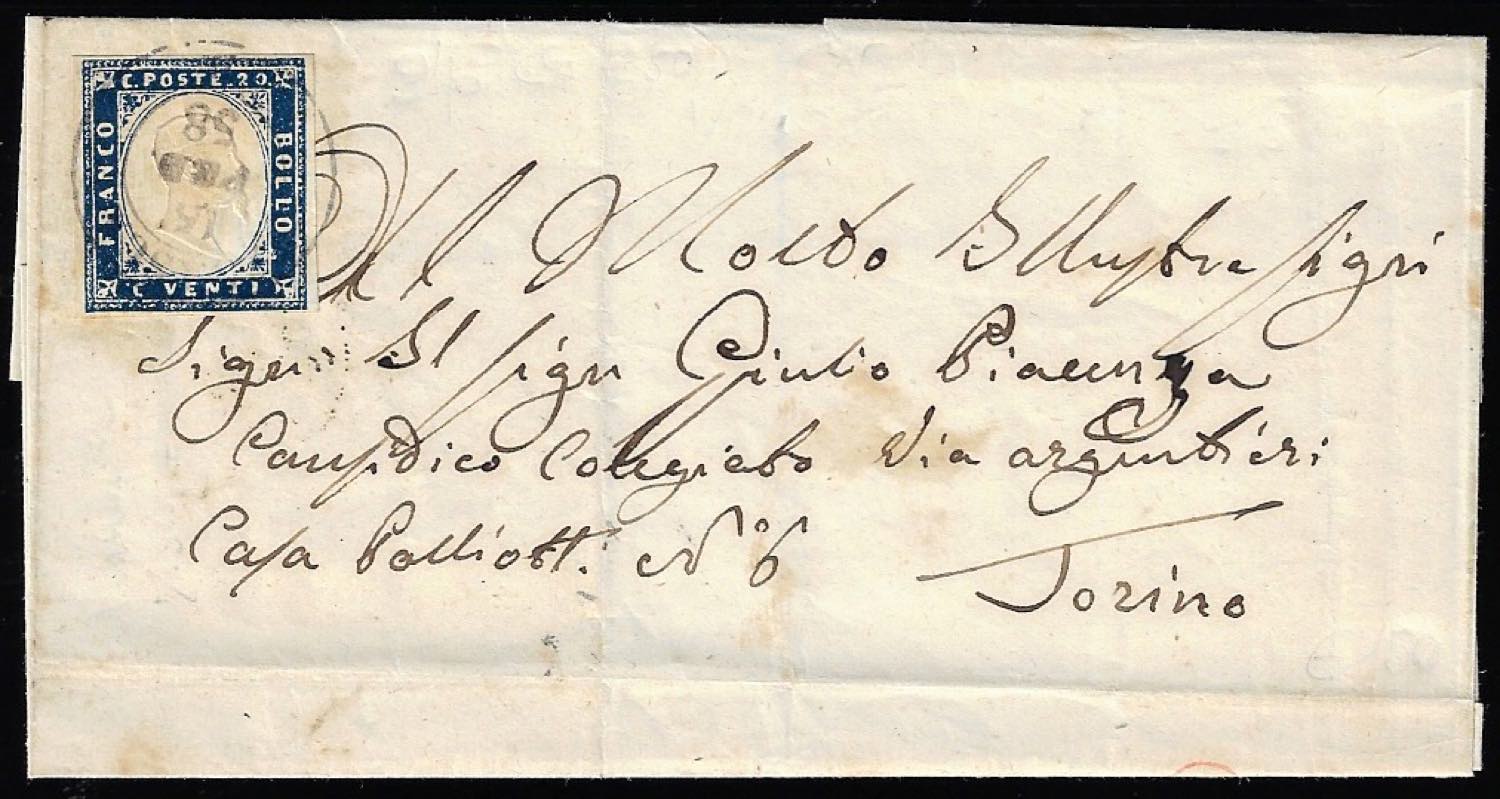 C. POSTE. 20.
FRANCO
BOLLO
C VENTI
58
Al Molto Illustre Sigri
Sigri Il Sigri Giulio Piacenza
Causidico Collegiato Via argentieri
Casa Palliott. N° 6
Torino